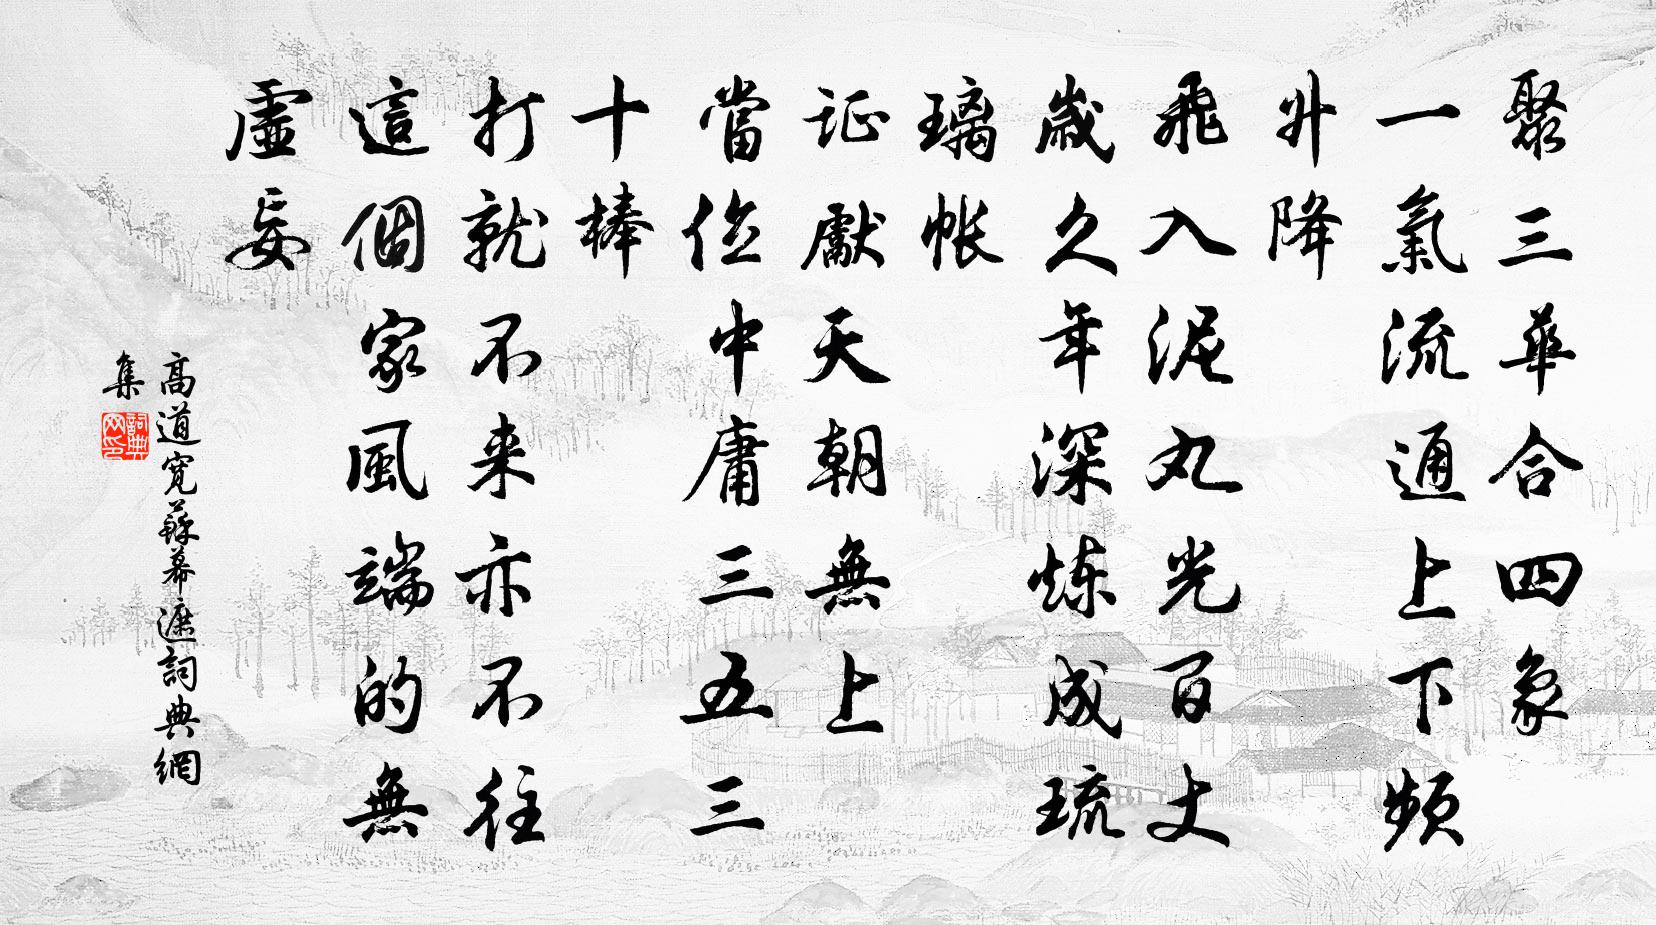 聚三華合四象
一氣流通上下頻
升降
飛入泥丸光百丈
歲久年深炼成琉
璃帐
证獻天朝無上
當位中庸三五三
十棒
打就不来亦不往
這個家風端的無
虛妄
高道宽蘇幕遮詞典網
集
詞典网印